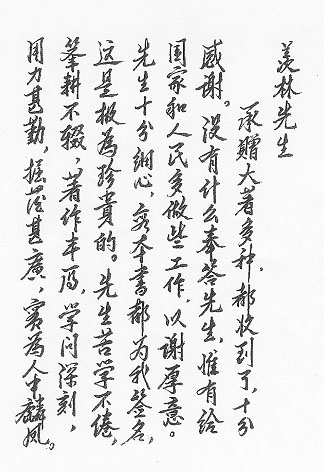 羡林先生
承赠大著多种，都收到了，十分
感谢。没有什么奉答先生，惟有给
国家和人民多做些工作，以谢厚意。
先生十分细心，每本书都为我签名，
这是极为珍贵的。先生苦学不倦，
笔耕不辍，著作丰厚，学问深刻，
用力甚勤，掘发甚广，实为人中麟凤。